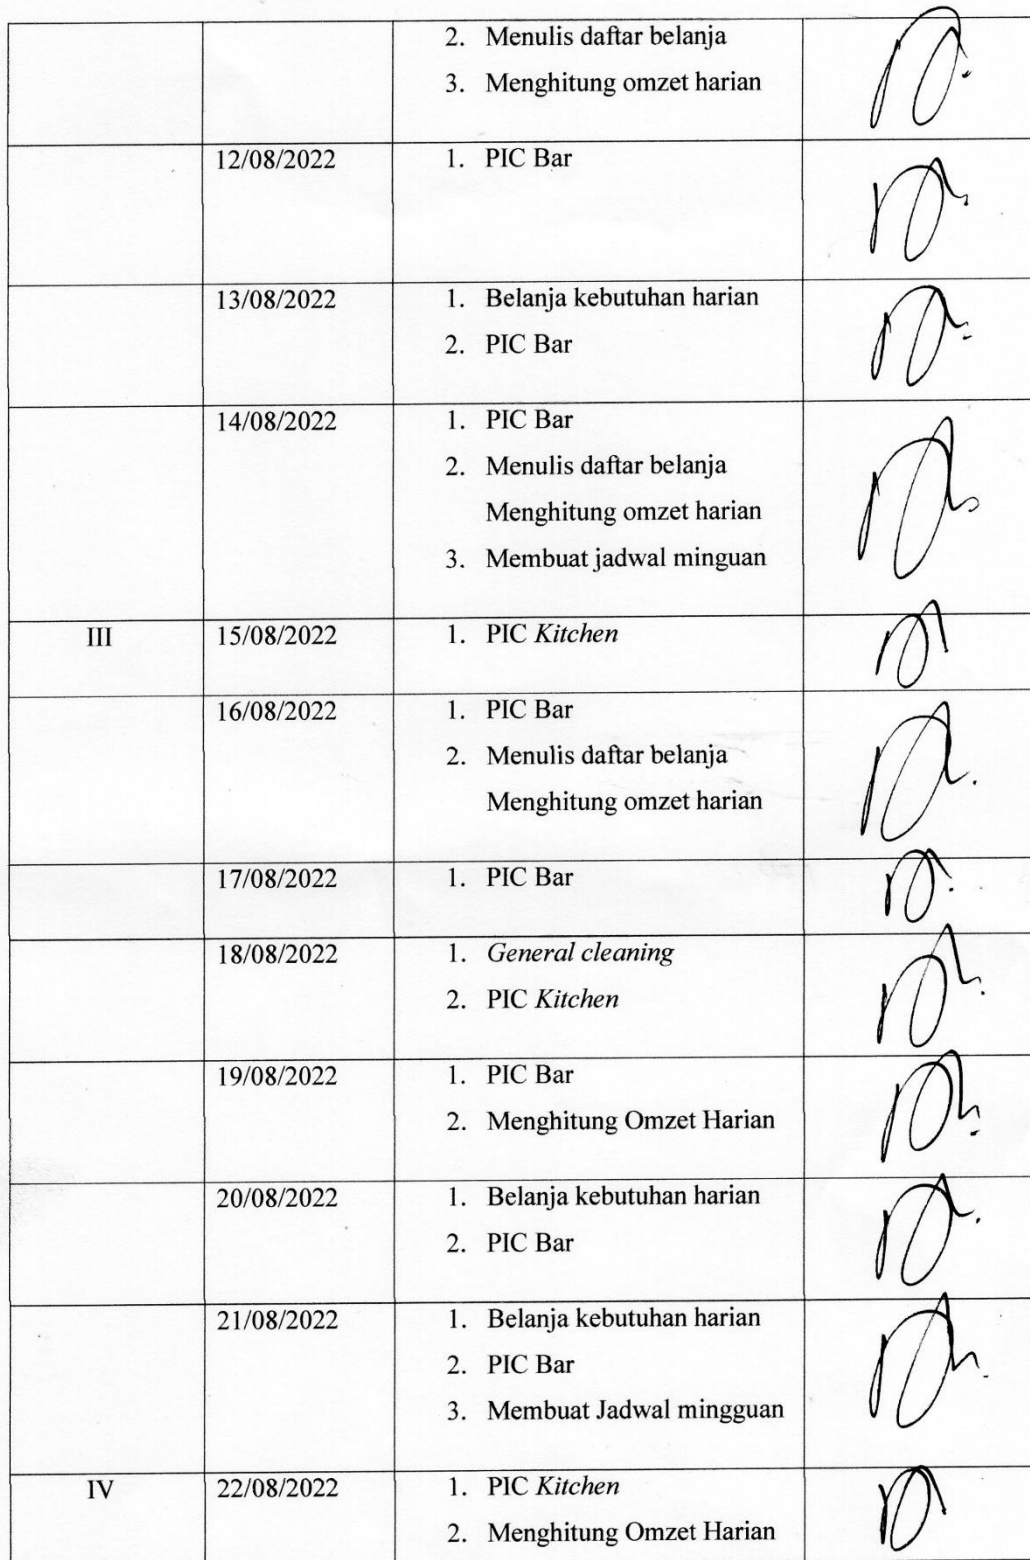 2. Menulis daftar belanja
3. Menghitung omzet harian
12/08/2022 1. PIC Bar
13/08/2022 1. Belanja kebutuhan harian
2. PIC Bar
14/08/2022 1. PIC Bar
2. Menulis daftar belanja
Menghitung omzet harian
3. Membuat jadwal minguan
III 15/08/2022 1. PIC Kitchen
16/08/2022 1. PIC Bar
2. Menulis daftar belanja
Menghitung omzet harian
17/08/2022 1. PIC Bar
18/08/2022 1. General cleaning
2. PIC Kitchen
19/08/2022 1. PIC Bar
2. Menghitung Omzet Harian
20/08/2022 1. Belanja kebutuhan harian
2. PIC Bar
21/08/2022 1. Belanja kebutuhan harian
2. PIC Bar
3. Membuat Jadwal mingguan
IV 22/08/2022 1. PIC Kitchen
2. Menghitung Omzet Harian